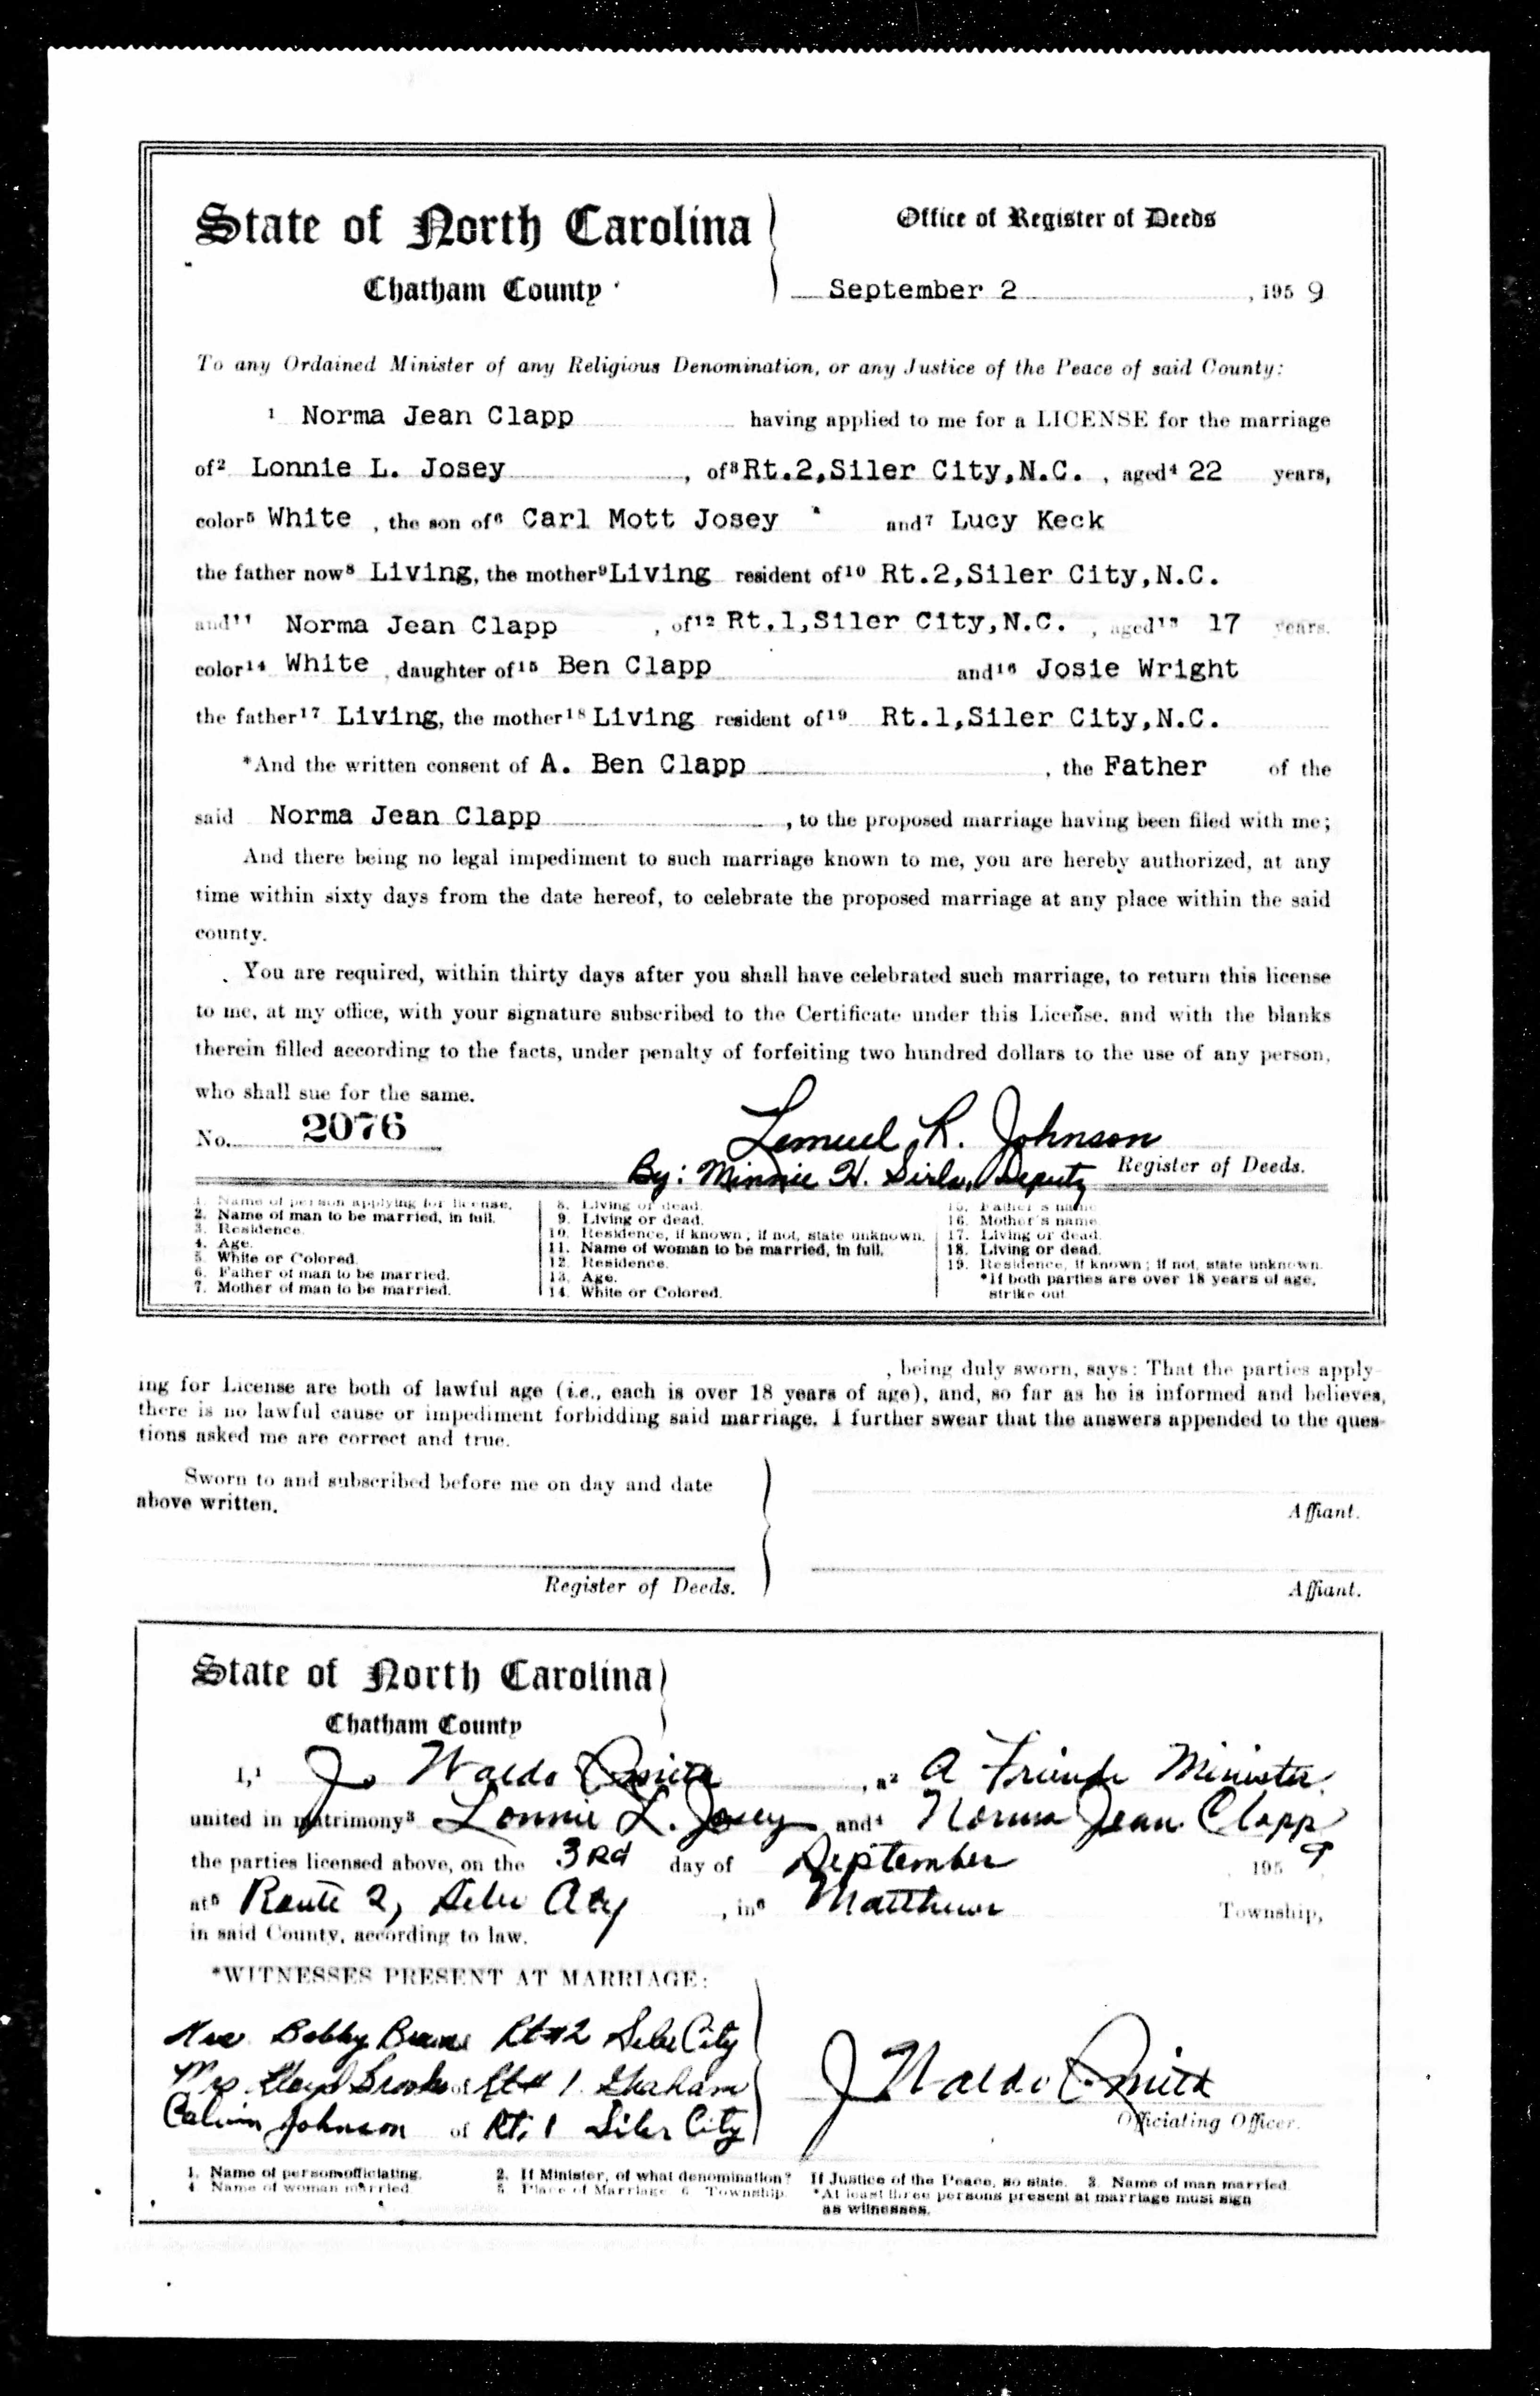 State of North Carolina
Office of Register of Deeds
Chatham County
September 2, 1959
To any Ordained Minister of any Religious Denomination, or any Justice of the Peace of said County:
1 Norma Jean Clapp having applied to me for a LICENSE for the marriage
of2 Lonnie L. Josey, of3 Rt.2,Siler City,N.C. , aged4 22 years,
color5 White , the son of6 Carl Mott Josey and7 Lucy Keck
the father now8 Living, the mother9 Living resident of10 Rt.2,Siler City,N.C.
and11 Norma Jean Clapp , of12 Rt.1,Siler City,N.C. , aged13 17 years.
color14 White , daughter of15 Ben Clapp and16 Josie Wright
the father17 Living, the mother18 Living resident of19 Rt.1,Siler City,N.C.
*And the written consent of A. Ben Clapp , the Father of the
said Norma Jean Clapp , to the proposed marriage having been filed with me;
And there being no legal impediment to such marriage known to me, you are hereby authorized, at any
time within sixty days from the date hereof, to celebrate the proposed marriage at any place within the said
county.
You are required, within thirty days after you shall have celebrated such marriage, to return this license
to me, at my office, with your signature subscribed to the Certificate under this License, and with the blanks
therein filled according to the facts, under penalty of forfeiting two hundred dollars to the use of any person,
who shall sue for the same.
No. 2076
Lemuel R. Johnson
By: Minnie H. Deputy Register of Deeds.
1. Name of person applying for license.
2. Name of man to be married, in full.
3. Residence.
4. Age.
5. White or Colored.
6. Father of man to be married.
7. Mother of man to be married.
8. Living or dead.
9. Living or dead.
10. Residence, if known; if not, state unknown.
11. Name of woman to be married, in full.
12. Residence.
13. Age.
14. White or Colored.
15. Father's name
16. Mother's name
17. Living or dead.
18. Living or dead.
19. Residence, if known; if not, state unknown.
*If both parties are over 18 years of age,
strike out
, being duly sworn, says: That the parties apply-
ing for License are both of lawful age (i.e., each is over 18 years of age), and, so far as he is informed and believes,
there is no lawful cause or impediment forbidding said marriage. I further swear that the answers appended to the ques-
tions asked me are correct and true.
Sworn to and subscribed before me on day and date
above written.
Affiant.
Register of Deeds.
Affiant.
State of North Carolina
Chatham County
I,1 J. Waldo Smith , a2 A Friends Minister
united in matrimony3 Lonnie L. Josey and4 Norma Jean Clapp
the parties licensed above, on the 3rd day of September 1959
at5 Route 2, Siler City , in6 Matthews Township,
in said County, according to law.
*WITNESSES PRESENT AT MARRIAGE:
Mrs Bobby Rt #2 Siler City
Mrs. Floyd Brooks of Rt # 1 Graham
Calvin Johnson of Rt. 1 Siler City
J Waldo Smith
Officiating Officer.
1. Name of person officiating. 2. If Minister, of what denomination? If Justice of the Peace, so state. 3. Name of man married.
4. Name of woman married 5. Place of Marriage 6. Township. *At least three persons present at marriage must sign
as witnesses.